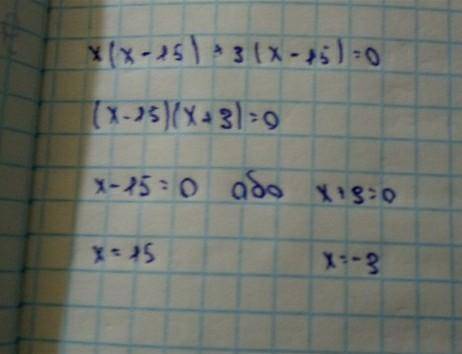 x(x-15)+3(x-15)=0
(x-15)(x+3)=0
x-15=0 або x+3=0
x=15 x=-3